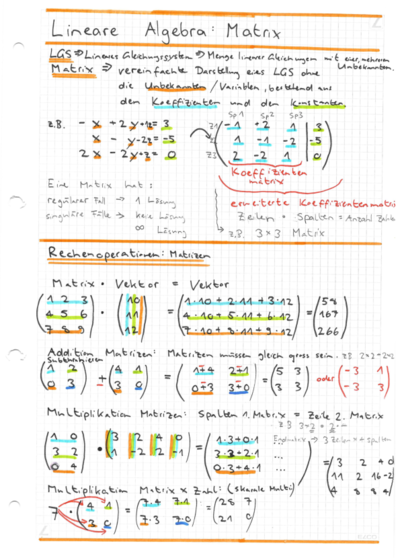 Lineare Algebra: Matrix
LGS => Lineares Gleichungssystem => Menge linearer Gleichungen mit einer, mehreren Unbekannten.
Matrix => vereinfachte Darstellung eines LGS ohne
die Unbekannten / Variablen, bestehend aus
den Koeffizienten und den Konstanten.
Sp1 Sp2 Sp3
z.B. -x + 2y + 1z = 3
x - y - 2z = -5
2x - 2y + z = 0
Z1 -1 +2 1 | 3
1 -1 -2 | -5
Z3 2 -2 1 | 0
Koeffizienten
matrix
Eine Matrix hat:
regulärer Fall → 1 Lösung
singuläre Fälle → keine Lösung
∞ Lösung
erweiterte Koeffizientenmatrix
Zeilen * Spalten = Anzahl
z.B. 3 x 3 Matrix
Rechenoperationen: Matrizen
Matrix • Vektor = Vektor
(1 2 3) (10) (1·10 + 2·11 + 3·12) (58)
(4 5 6) • (11) = (4·10 + 5·11 + 6·12) = (167)
(7 8 9) (12) (7·10 + 8·11 + 9·12) (266)
Addition Matrizen: Matrizen müssen gleich gross sein. z.B. 2x2 + 2x2
Subtrahieren
(1 2) + (4 1) = (1+4 2+1) = (5 3) oder (-3 1)
(0 3) - (3 0) (0+3 3+0) (3 3) (-3 3)
Multiplikation Matrizen: Spalten 1. Matrix = Zeile 2. Matrix
z.B.
(1 0) (3 2 4 0) (1·3+0·1
(3 2) • (1 -2 -2 -1) = (3·3+2·1 ...
(0 4) (0·3+4·1 ...
Endmatrix → 3 Zeilen x Spalten
= (3 2 4 0)
(11 2 16 -2)
Multiplikation Matrix x Zahl: (skalare Multi)
7 • (4 1) = (7·4 7·1) = (28 7)
(3 0) (7·3 7·0) (21 0)